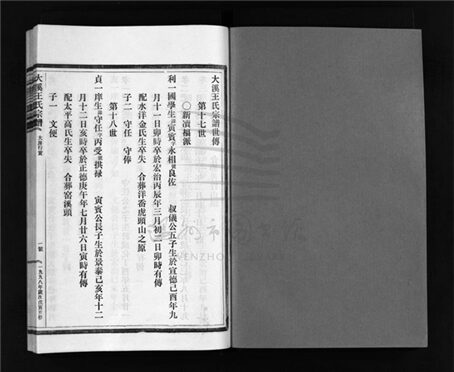 大溪王氏宗譜世傳
第十七世
○新濆福派
利一國學生諱寅賓字永相號良佐 叔儀公五子生於宣德己酉年九
月十一日卯時卒於宏治丙辰年三月初二日卯時有傳
配水洋金氏生卒失 合葬洋嶴虎頭山之原
子二 守任 守俸
第十八世
貞一庠生諱守任字丙受號拱祿 寅賓公長子生於景泰己亥年十二
月十二日亥時卒於正德庚午年七月廿六日寅時有傳
配太平高氏生卒失 合葬窑溪頭
子一 文便
大溪王氏宗譜
大房行實
一號
一九九八年歲次戊寅重修